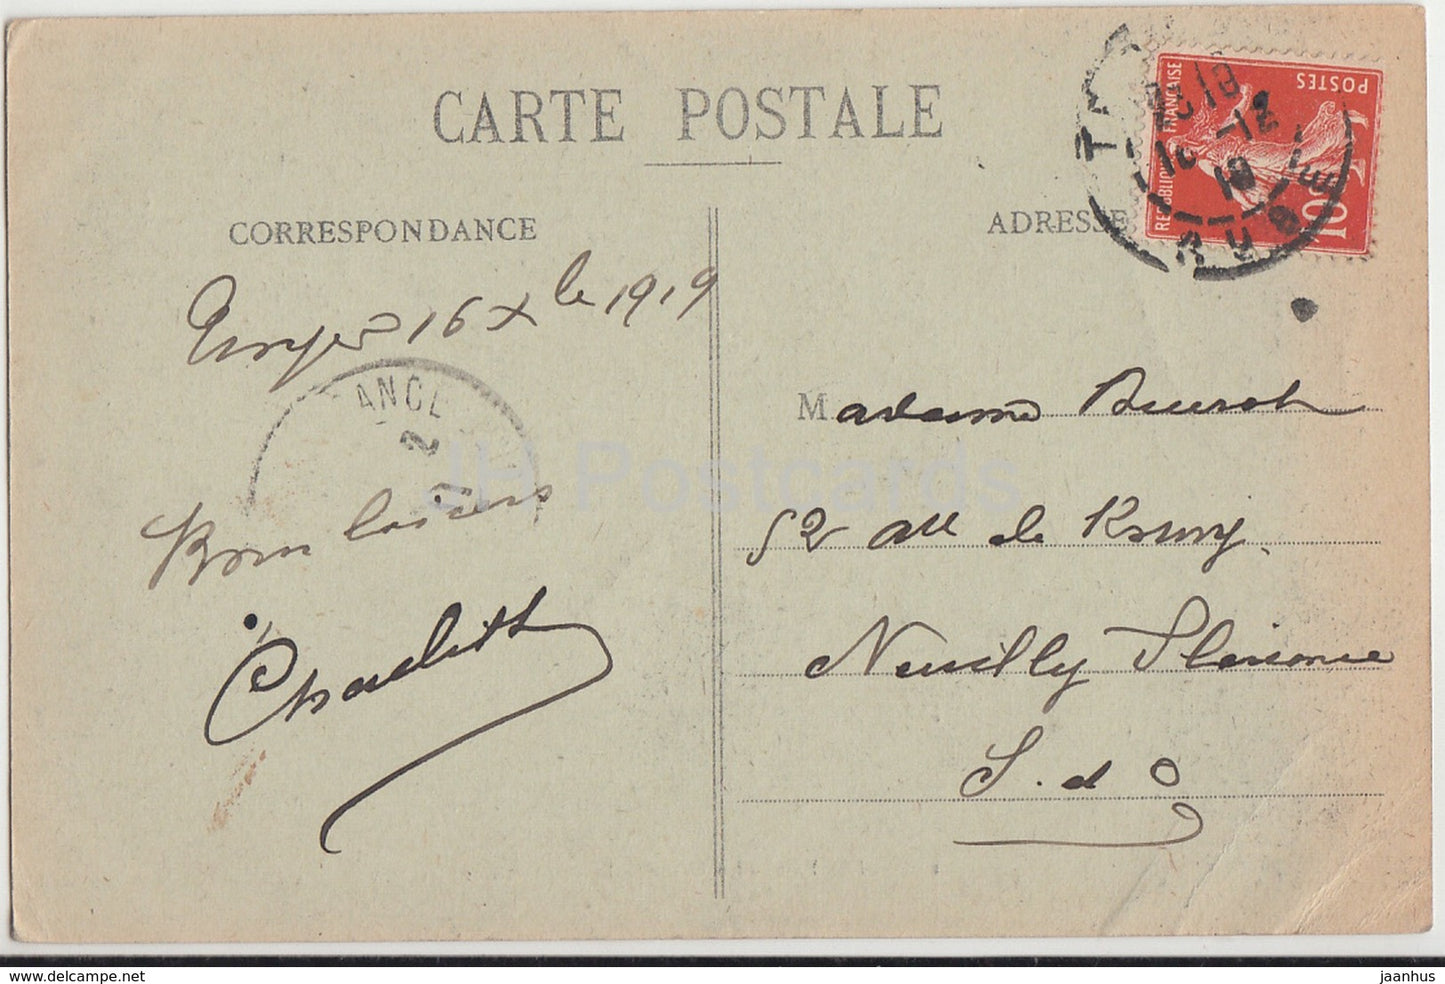 CARTE POSTALE
CORRESPONDANCE
16 Xbre 1919
ANCE
2
Bons baisers
ADRESSE
REPUBLIQUE FRANÇAISE
POSTES
10c
Madame
52 all de
Neuilly Plaisance
S. et O
JH Postcards
www.delcampe.net
jaanhus